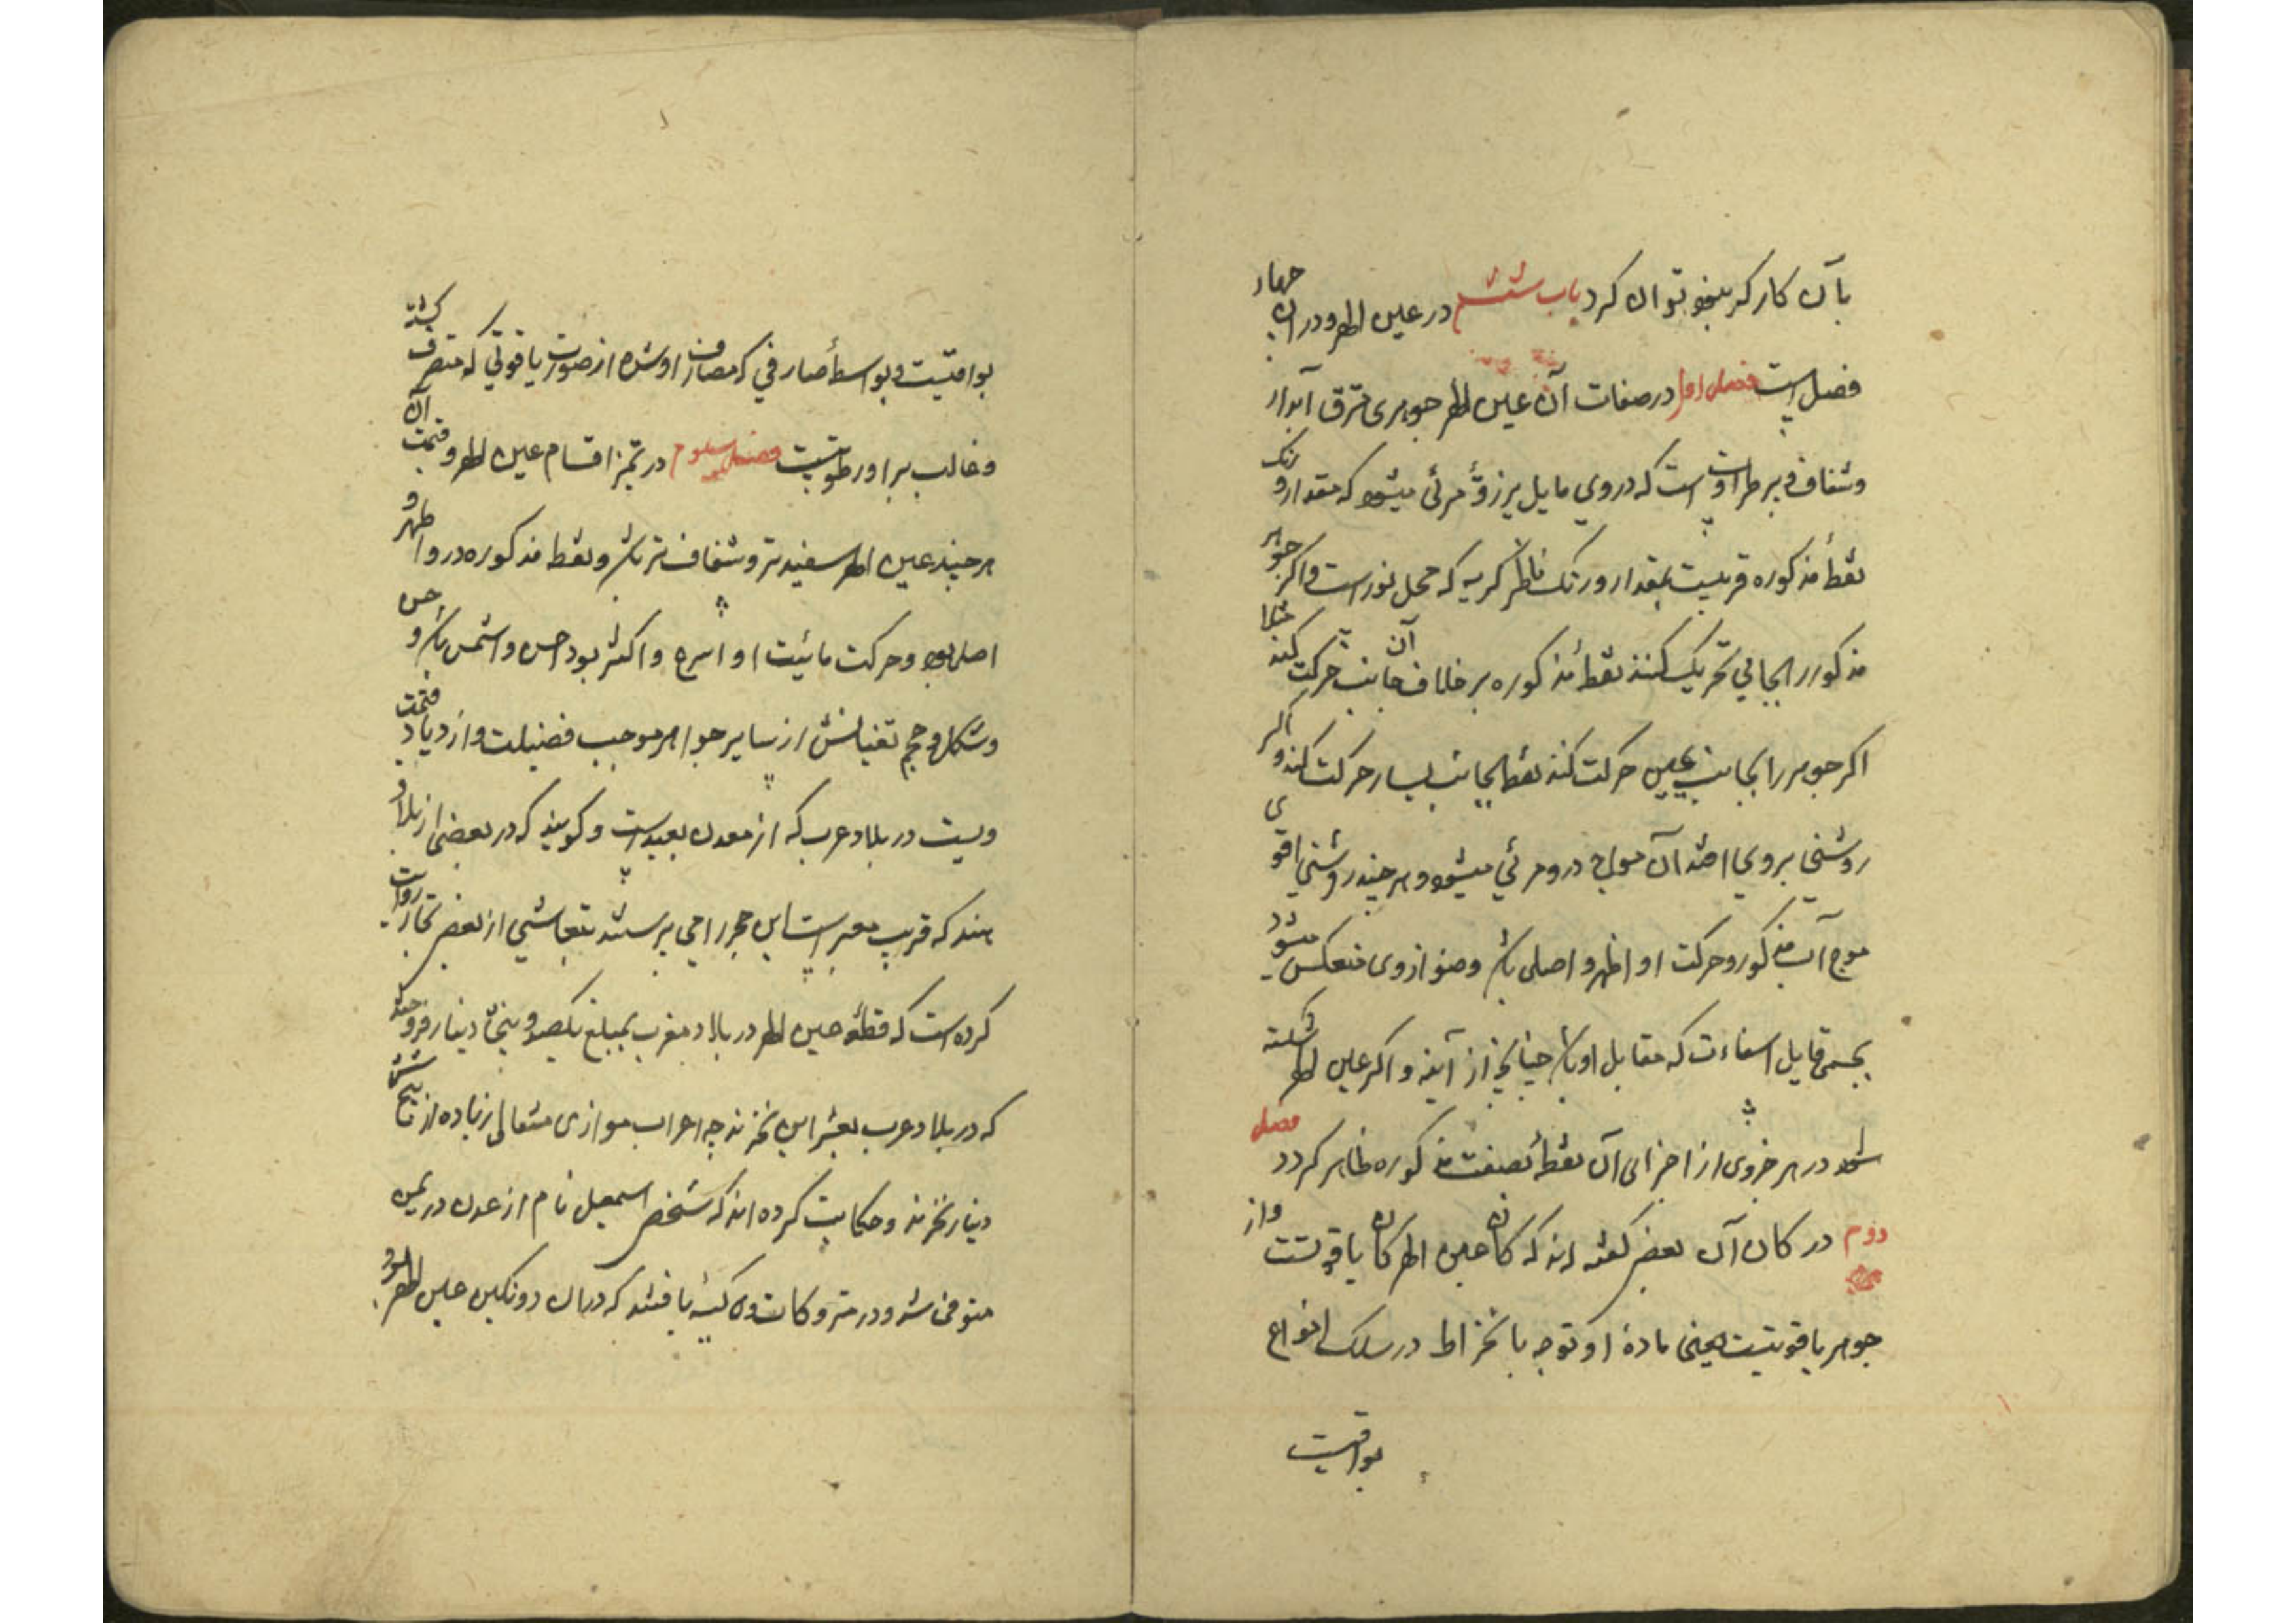 بآن کار کرد بیغو توان کرد باب ششم در عین الهر و در آن چهار
فصل است فصل اول در صفات آن عین الهر جوهری مترق آبدار
وشفاف و بر طراوت است که در وی مایل بر زو مرئی میشود که مقدار و رنک
نقطهٔ مذکوره قریبست بمقدار و رنک ناظر کربه که محل نور است و اکر جوهر
مذکور را بجانبی تحریک کنند نقطهٔ مذکوره بر خلاف آن جانب حرکت کند مثلا
اکر جوهر را بجانب یمین حرکت کند نقطه بجانب یسار حرکت کند و اکر
روشنی بروی افتد آن مواج درو مرئی میشود و هر چند روشنی اقوی
موج آب مذکور و حرکت او اظهر و اصلی باشد و ضو از وی منعکس میشود
بجسمی قابل استضاءت که مقابل او باشد چنانچه از آینه و اکر عین الهر شکسته
شود در هر جزوی از اجزای آن نقطهٔ بصفت مذکوره ظاهر کردد فصل
دوم در کان آن بعضی کفته اند که کان عین الهر کان یاقوتست و از
جوهر یاقوتیست یعنی مادهٔ او توجه بانخراط در سلک انواع
یواقیت
یواقیتست و بواسطهٔ صارفی که مصارف او شده از صورت یاقوتی که منصرف کشته
وغالب بر او رطوبتیست فصل سوم در تمیز اقسام عین الهر و قیمت آن
هر چند عین الهر سفیدتر و شفاف تر باشد و نقطهٔ مذکوره در و اظهر و
اصلی بود و حرکت مائیت او اسرع و اکثر بود احسن و اثمن باشد و حسن
وشکل و حجم نفیانش از سایر جواهر موجب فضیلت و ازدیاد قیمت
ویست در بلاد عرب که از معدن بعید است و کویند که در بعضی از بلاد
هند که قریب معبر است این حجر را می پرستند نیفاشی از بعضی تجار روایت
کرده است که قطعهٔ عین الهر در بلاد مغرب بمبلغ یکصد و پنجاه دینار فروختند
که در بلاد عرب بعشر این نخرند چه اعراب موازی مثقالی زیاده از پنج شش
دینار نخرند و حکایت کرده اند که شخصی اسمعیل نام از عدن در یمن
متوفی شد و در متروکات وی کیسهٔ یافتند که در آن دو نکین عین الهر بود